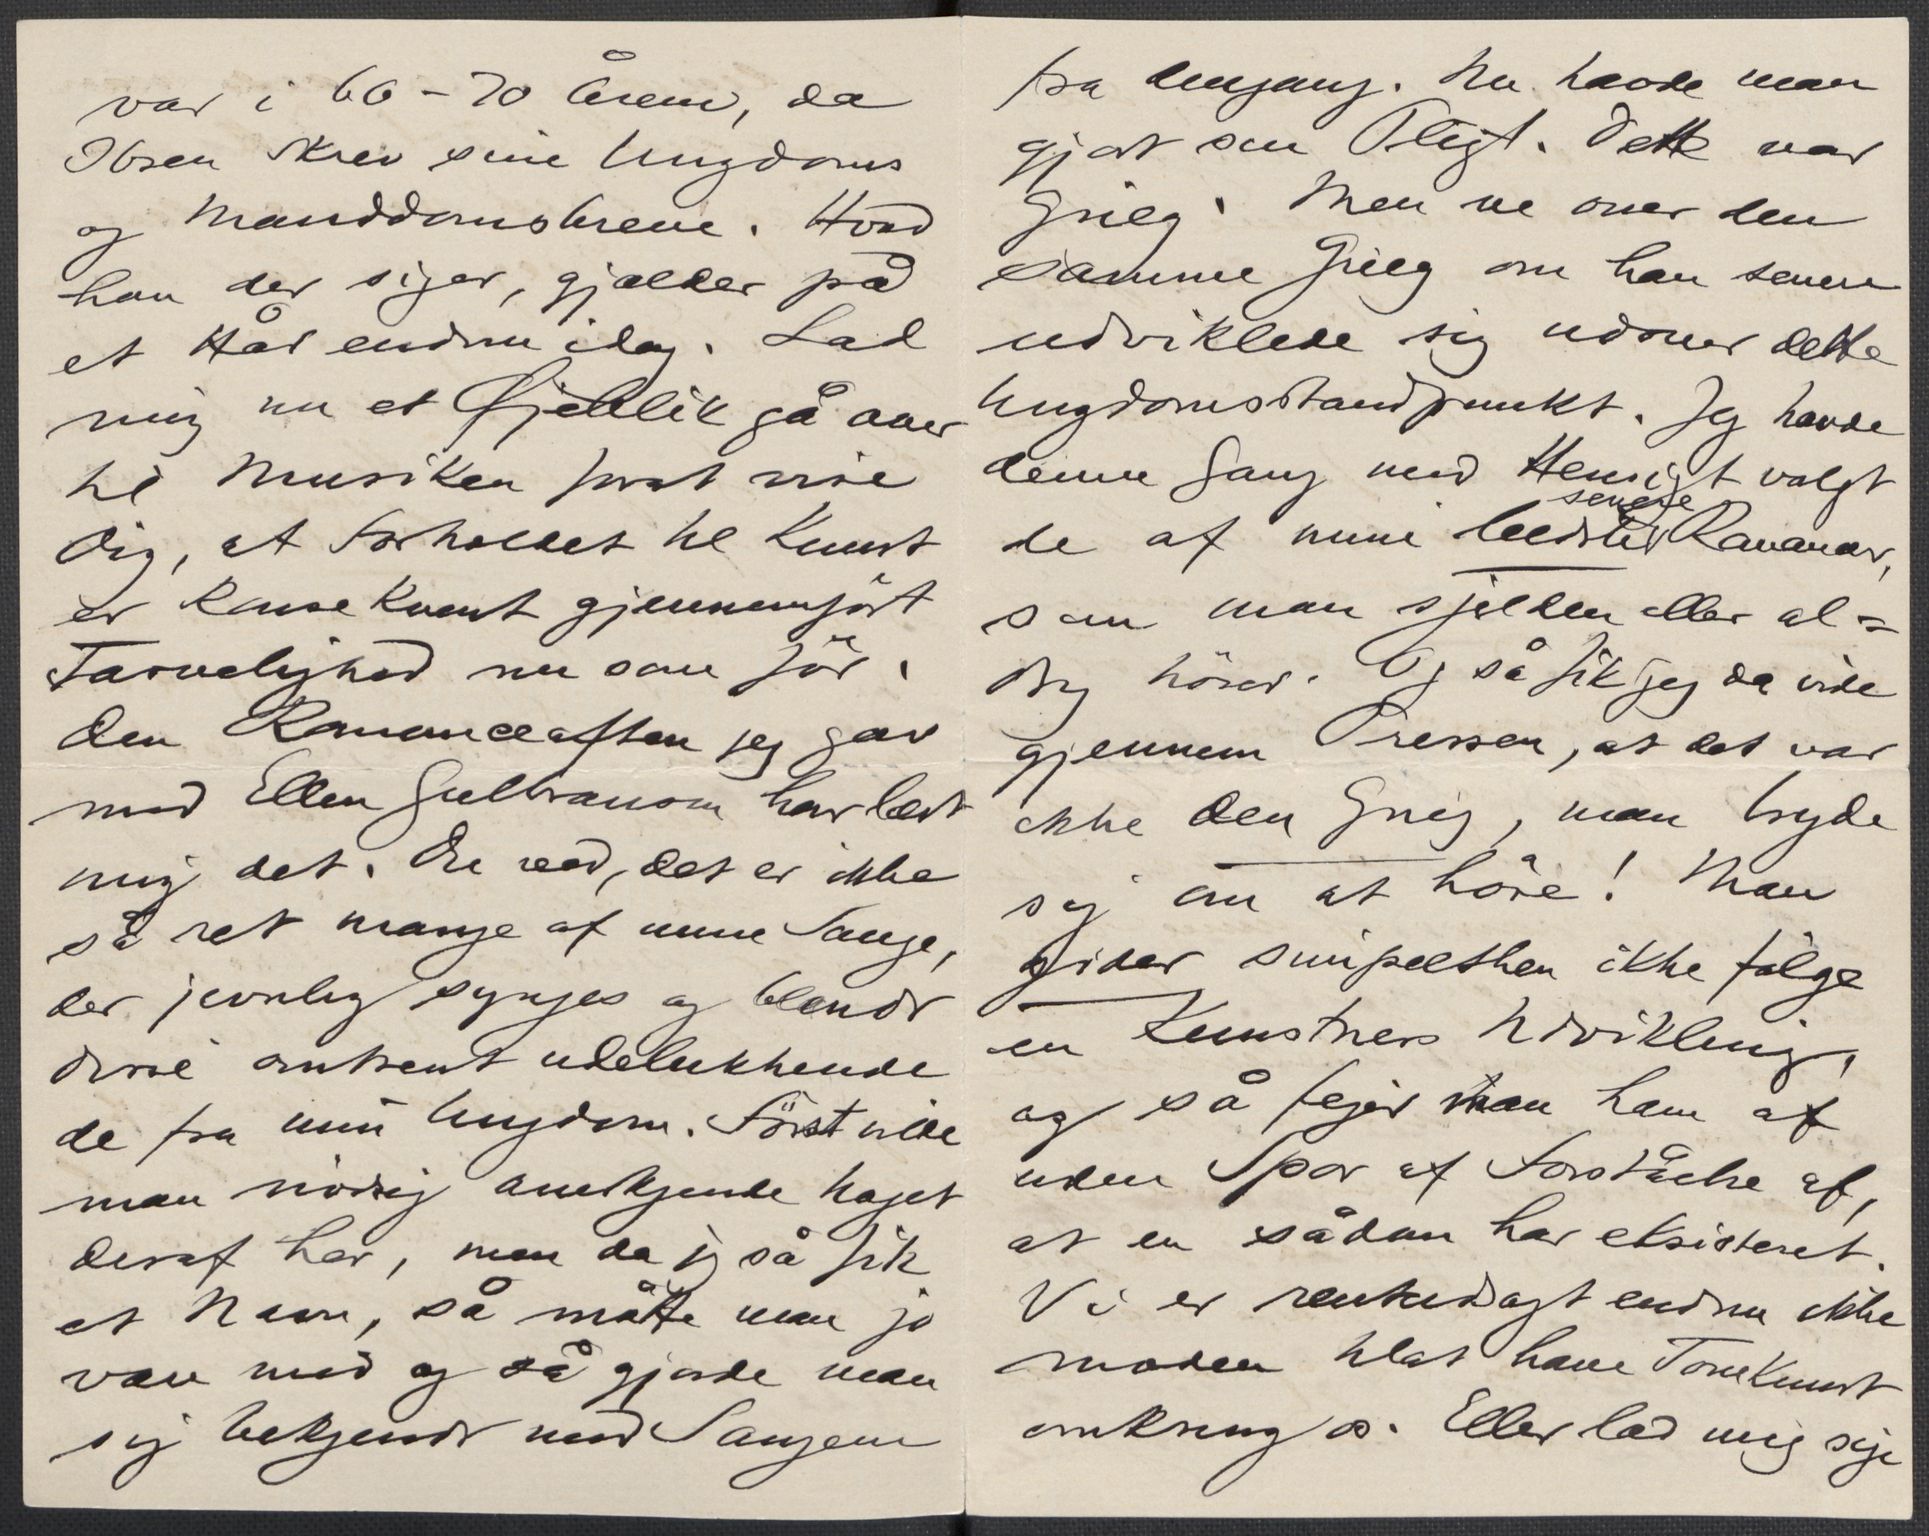 var i 60-70 Årene, da
Ibsen skrev sine Ungdoms
og Manddomsbreve. Hvad
han der siger, gjælder på
et Hår endnu idag. Lad
mig nu et Øjeblik gå over
til Musiken forat vise
Dig, at Forholdet til Kunst
er konsekvent gjennemført
Tarvelighed nu som før.
Den Romanceaften jeg gav
med Ellen Gulbranson har lært
mig det. Du ved, det er ikke
så ret mange af mine Sange,
der jevnlig synges og blandt
disse omtrent udelukkende
de fra min Ungdom. Først vilde
man nødig anerkjende Noget
deraf her, men da jeg så fik
et Navn, så måtte man jo
være med og så gjorde man
sig bekjendt med Sangene
fra dengang. Nu havde man
gjort sin Pligt. Dette var
Grieg. Men ve over den
samme Grieg om han senere
udviklede sig udover dette
Ungdomsstandpunkt. Jeg havde
denne Gang med Hensigt valgt
senere
de af mine bedste Romancer,
som man sjelden eller al=
drig hører. Og så fik jeg da vide
gjennem Pressen, at det var
ikke den Grieg, man bryde
sig om at høre! Man
gider simpelthen ikke følge
en Kunstners Udvikling,
og så fejer man ham af
uden Spor af Forståelse af,
at en sådan har eksisteret.
Vi er rentudsagt endnu ikke
moden tilat have Tonekunst
omkring os. Eller lad mig sige